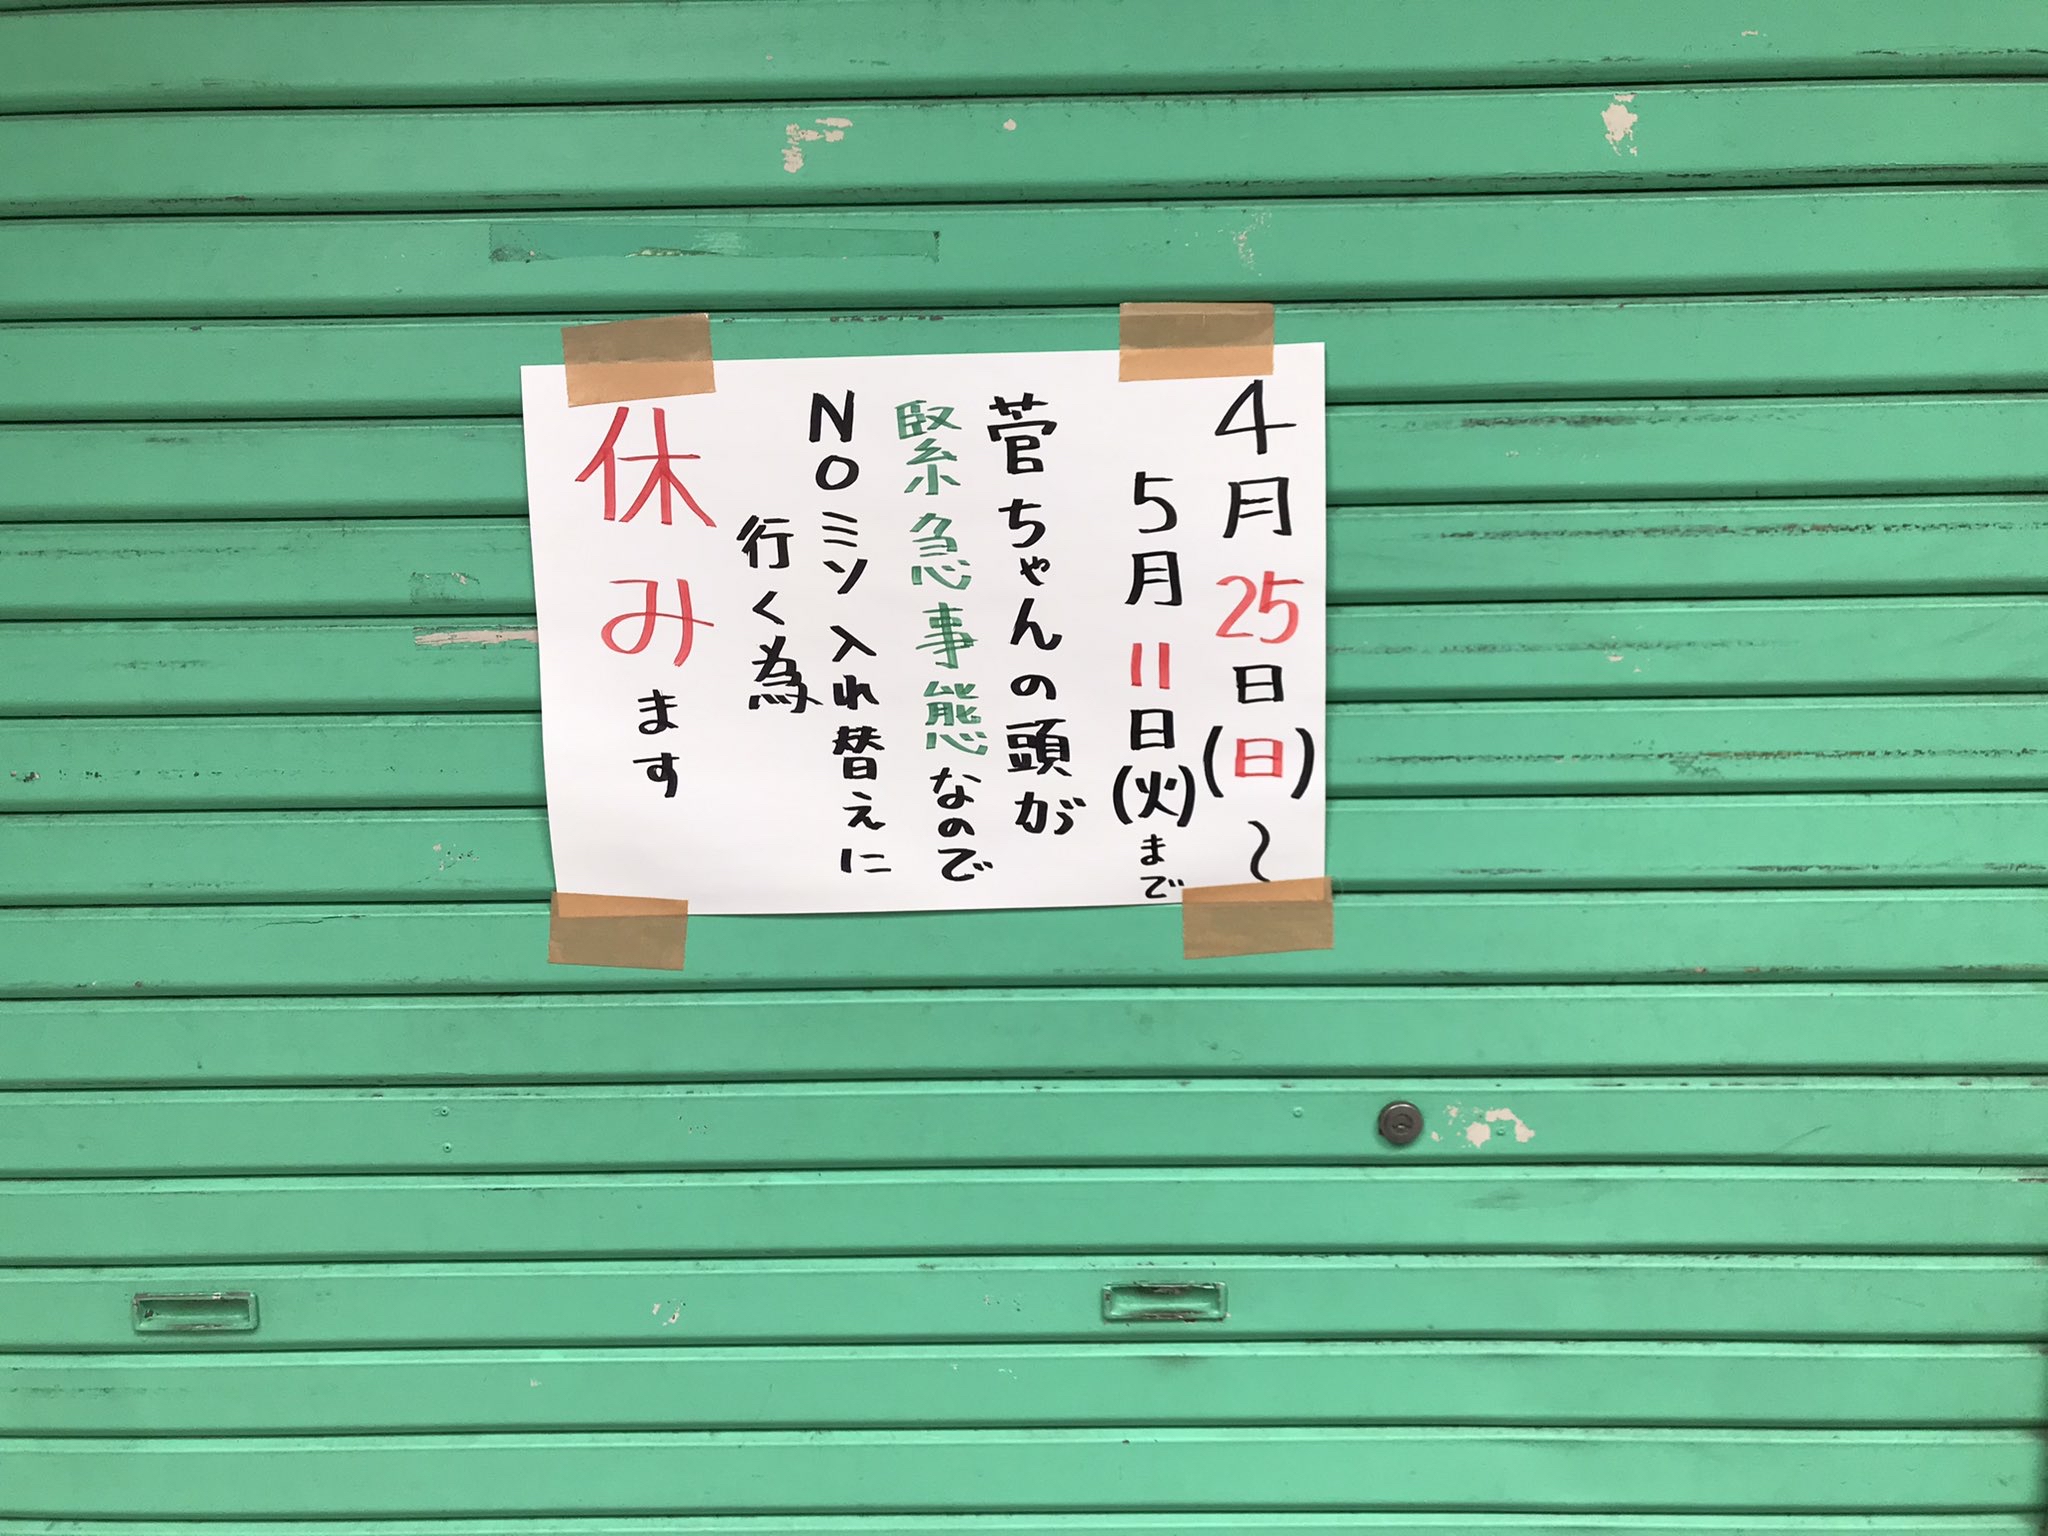 4月25日(日)〜
5月11日(火)まで
菅ちゃんの頭が
緊急事態なので
NOミソ入れ替えに
行く為
休みます